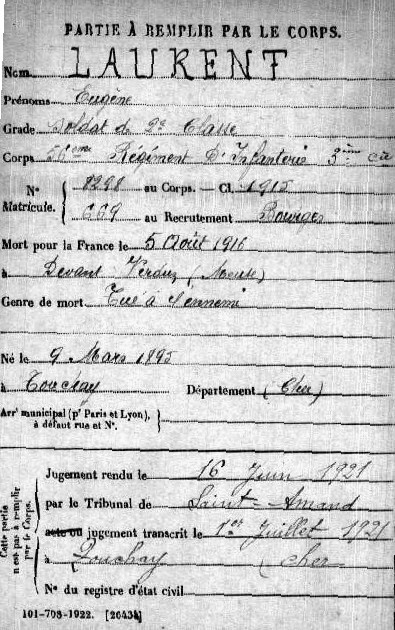 PARTIE À REMPLIR PAR LE CORPS.
Nom LAURENT
Prénoms Eugène
Grade Soldat de 2e Classe
Corps 56eme Régiment D'Infanterie 3ème Cie
N° Matricule. 8298 au Corps. — Cl. 1915
669 au Recrutement Bourges
Mort pour la France le 5 Août 1916
à Devant Verdun (Meuse)
Genre de mort Tué à l'ennemi
Né le 9 Mars 1895
à Touchay Département (Cher)
Arrt municipal (pr Paris et Lyon), à défaut rue et N°.
Cette partie n'est pas à remplir par le Corps.
Jugement rendu le 16 Juin 1921
par le Tribunal de Saint-Amand
acte ou jugement transcrit le 1er Juillet 1921
à Touchay Cher
N° du registre d'état civil
101-708-1922. [26434]